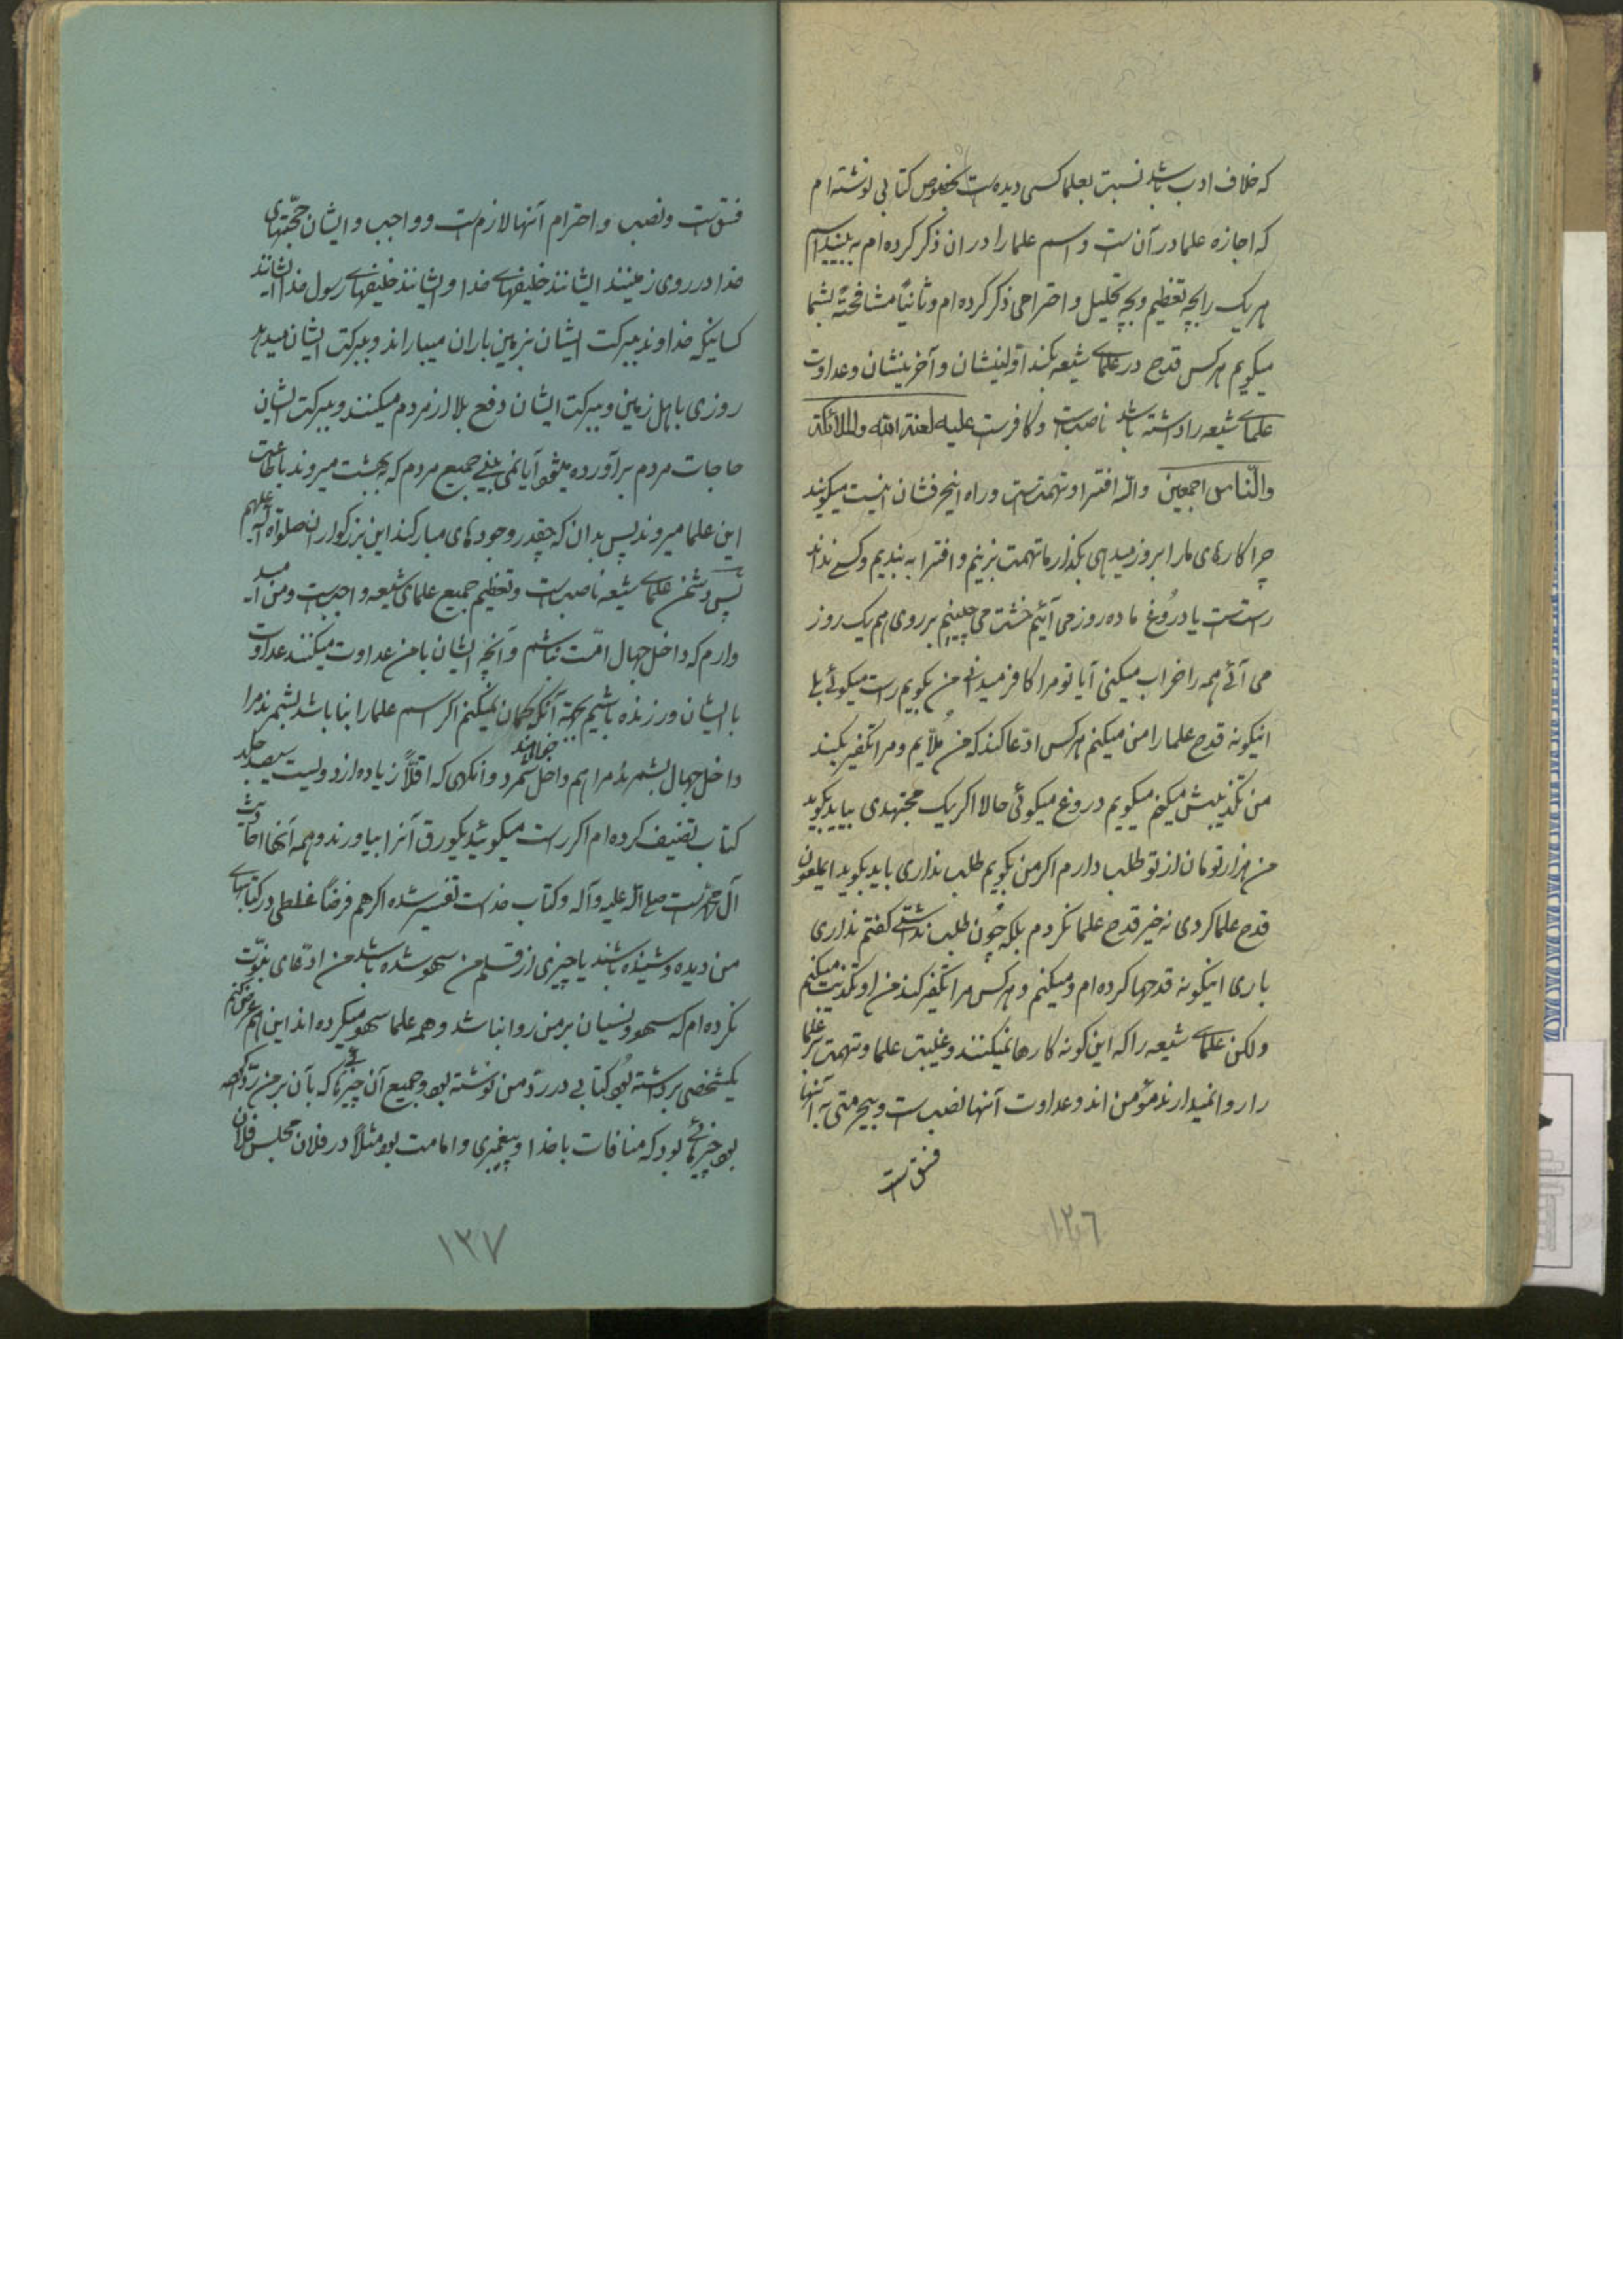 که خلاف ادب باشد نسبت بعلما کسی دیده است بخصوص کتابی نوشته‌ام
که اجازه علما در آن است و اسم علما را در ان ذکر کرده‌ام به بینید اسم
هر یک را بچه تعظیم و بچه تجلیل و احترامی ذکر کرده‌ام و ثانیاً مشافحتهً بشما
میگویم هر کس قدح در علمای شیعه بکند اولینشان و آخرینشان و عداوت
علمای شیعه را داشته باشد ناصب است و کافر است علیه لعنة الله والملائکة
والناس اجمعین والله افترا و تهمت است و راه اینحرفشان اینست میگویند
چرا کارهای ما را بروز میدهی بگذار ما تهمت بزنیم و افترا به بندیم و کسی نداند
راست است یا دروغ ما ده روز می آئیم خشت می چینیم بر روی هم یک روز
می آئی همه را خراب میکنی آیا تو مرا کافر میدانی من بگویم راست میگوئی بلی
اینگونه قدح علما را من میکنم هر کس ادّعا کند که من ملّایم و مرا تکفیر بکند
من تکذیبش میکنم میگویم دروغ میگوئی حالا اگر یک مجتهدی بیاید بگوید
من هزار تومان از تو طلب دارم اگر من بگویم طلب نداری باید بگوید ایملعون
قدح علما کردی نه خیر قدح علما نکردم بلکه چون طلب نداشتی گفتم نداری
باری اینگونه قدحها کرده‌ام و میکنم و هر کس مرا تکفیر کند من او را تکذیب میکنم
ولکن علمای شیعه را که این گونه کارها نمیکنند و غیبت علما و تهمت بر علما
را روا نمیدارند مؤمن اند و عداوت آنها نصب است و بیحرمتی به آنها
فسق است
۱۳۶
فسق است و نصب و احترام آنها لازم است و واجب و ایشان حجّتهای
خدا در روی زمینند ایشانند خلیفهای خدا و ایشانند خلیفهای رسول خدا ایشانند
کسانیکه خداوند ببرکت ایشان بزمین باران میباراند و ببرکت ایشان میدهد
روزی باهل زمین و ببرکت ایشان دفع بلا از مردم میکنند و ببرکت ایشان
حاجات مردم برآورده میشود آیا نمی بینی جمیع مردم که بهشت میروند باطاعت
این علما میروند پس بدان که چقدر وجودهای مبارکند این بزرگواران صلواة الله علیهم
پس دشمن علمای شیعه ناصب است و تعظیم جمیع علمای شیعه واجب است و من امید
وارم که داخل جهال امّت نباشم و آنچه ایشان با من عداوت میکنند عداوت
با ایشان ورزنده باشیم بجهة آنکه گمان نمیکنم اگر اسم علما را بنا باشد بشمرند مرا
داخل جهال بشمرند مرا هم داخل خواهند شمرد وانگهی که اقلاً زیاده از دویست سیصد جلد
کتاب تصنیف کرده‌ام اگر راست میگوئید یکورق آنرا بیاورند و همه آنها احادیث
آل محمد است صلی الله علیه وآله و کتاب خداست تفسیر شده اگر هم فرضاً غلطی در کتابهای
من دیده و شنیده باشند یا چیزی از قلم من سهو شده باشد من ادّعای نبوّت
نکرده‌ام که سهو و نسیان بر من روا نباشد و همه علما سهو میکرده‌اند این هم عرض کنم
یکشخصی برداشته بود کتابی در ردّ من نوشته بود و جمیع آن چیزهائی که بآن بر من ردّ کرده
بود چیزهائی بود که منافات با خدا و پیغمبری و امامت بود مثلاً در فلان مجلس فلان
۱۳۷